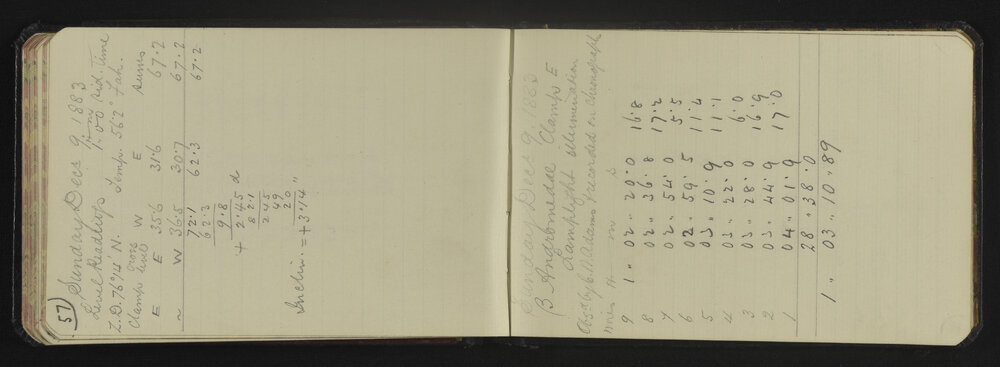 57
Sunday Decr 9, 1883
Level Readings 1h 00m Sid. Time
Z.D. 76°14' N. Temp. 56.2° Fah.
Clamps Cross Levels W E Sums
E E 35.6 31.6 67.2
~ W 36.5 30.7 67.2
72.1 62.3 67.2
62.3
9.8
+ 2.45 d
8 2.1
2 45
49
20
Inclin. = + 3.14"
Sunday Decr 9, 1883
β Andromedae Clamps E
Lamplight determination
Obsd by C. H. Adams / recorded on chronograph
Wires H m s
9 1 „ 02 „ 20.0 16.8
8 02 „ 36.8 17.2
7 02 „ 54.0 5.5
6 02 „ 59.5 11.4
5 03 „ 10.9 11.1
4 03 „ 22.0 6.0
3 03 „ 28.0 16.9
2 03 „ 44.9 17.0
1 04 „ 01.9
28 „ 38.0
1 „ 03 „ 10.89